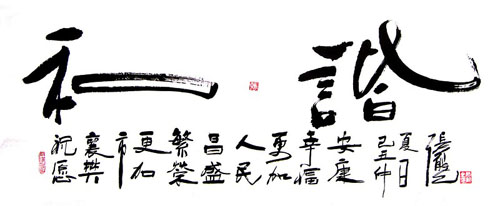 和諧
祝愿
襄樊
市
更加
繁荣
昌盛
人民
更加
幸福
安康
己丑仲
夏日
张